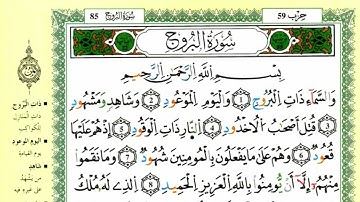 حزب 59
سُورَةُ البُرُوج 85
سُورَةُ البُرُوج
بِسْمِ اللَّهِ الرَّحْمَنِ الرَّحِيمِ
وَالسَّمَآءِ ذَاتِ الْبُرُوجِ 1 وَالْيَوْمِ الْمَوْعُودِ 2 وَشَاهِدٍ وَمَشْهُودٍ
3 قُتِلَ أَصْحَٰبُ الْأُخْدُودِ 4 النَّارِ ذَاتِ الْوَقُودِ 5 إِذْ هُمْ عَلَيْهَا
قُعُودٌ 6 وَهُمْ عَلَىٰ مَا يَفْعَلُونَ بِالْمُؤْمِنِينَ شُهُودٌ 7 وَمَا نَقَمُوا
مِنْهُمْ إِلَّا أَنْ يُؤْمِنُوا بِاللَّهِ الْعَزِيزِ الْحَمِيدِ 8 الَّذِي لَهُ مُلْكُ
ذَاتِ الْبُرُوجِ
ذات المنازل
للكواكب
الْيَوْمِ الْمَوْعُودِ
يوم القيامة
شَاهِدٍ
من يشهد
على غيره فيه